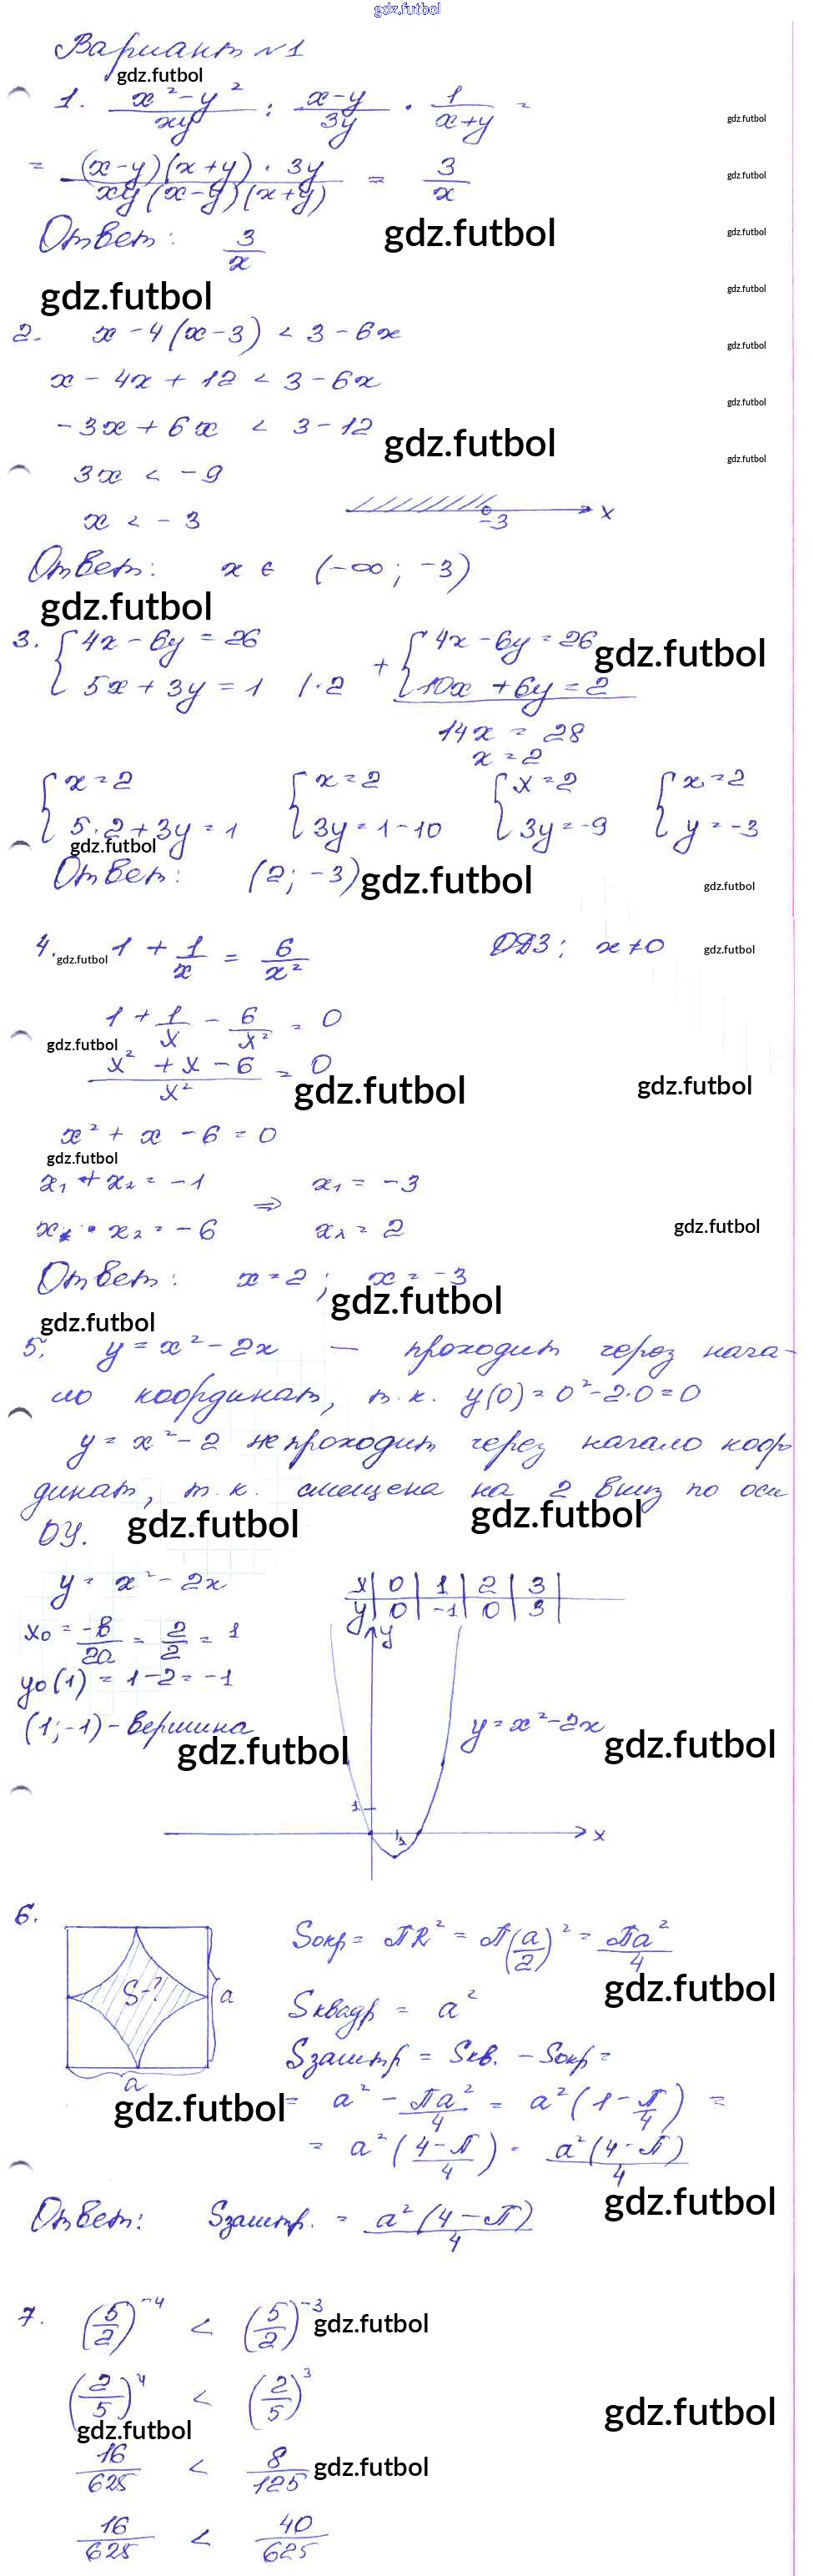 gdz.futbol
Вариант №1
gdz.futbol
1. (x² - y²)/(xy) : (x - y)/(3y) · 1/(x + y) =
gdz.futbol
= ((x - y)(x + y) · 3y)/(xy(x - y)(x + y)) = 3/x
gdz.futbol
Ответ: 3/x
gdz.futbol
gdz.futbol
gdz.futbol
gdz.futbol
2. x - 4(x - 3) < 3 - 6x
gdz.futbol
x - 4x + 12 < 3 - 6x
gdz.futbol
-3x + 6x < 3 - 12
gdz.futbol
gdz.futbol
3x < -9
x < -3
-3 x
Ответ: x ∈ (-∞; -3)
gdz.futbol
3. { 4x - 6y = 26
5x + 3y = 1 | · 2
+ { 4x - 6y = 26
10x + 6y = 2
gdz.futbol
14x = 28
x = 2
{ x = 2 { x = 2 { x = 2 { x = 2
5 · 2 + 3y = 1 3y = 1 - 10 3y = -9 y = -3
gdz.futbol
Ответ: (2; -3)
gdz.futbol
gdz.futbol
4. 1 + 1/x = 6/x² ОДЗ: x ≠ 0
gdz.futbol
gdz.futbol
1 + 1/x - 6/x² = 0
gdz.futbol
(x² + x - 6)/x² = 0
gdz.futbol
gdz.futbol
x² + x - 6 = 0
gdz.futbol
x₁ + x₂ = -1 ⇒ x₁ = -3
x₁ · x₂ = -6 x₂ = 2
gdz.futbol
Ответ: x = 2; x = -3
gdz.futbol
gdz.futbol
5. y = x² - 2x — проходит через нача-
ло координат, т.к. y(0) = 0² - 2·0 = 0
y = x² - 2 не проходит через начало коор
динат, т.к. смещена на 2 вниз по оси
ОУ.
gdz.futbol
gdz.futbol
y = x² - 2x
x | 0 | 1 | 2 | 3 |
y | 0 | -1 | 0 | 3 |
x₀ = -в/2a = 2/2 = 1
y₀(1) = 1 - 2 = -1
(1; -1) - вершина
y
y = x² - 2x
gdz.futbol
gdz.futbol
1
1
x
6.
S-?
a
a
Sокр = πR² = π(a/2)² = πa²/4
gdz.futbol
Sквадр = a²
Sзаштр = Sкв. - Sокр =
gdz.futbol
= a² - πa²/4 = a²(1 - π/4) =
= a²((4 - π)/4) = a²(4 - π)/4
gdz.futbol
Ответ: Sзаштр. = a²(4 - π)/4
7. (5/2)⁻⁴ < (5/2)⁻³
gdz.futbol
(2/5)⁴ < (2/5)³
gdz.futbol
gdz.futbol
16/625 < 8/125
gdz.futbol
16/625 < 40/625